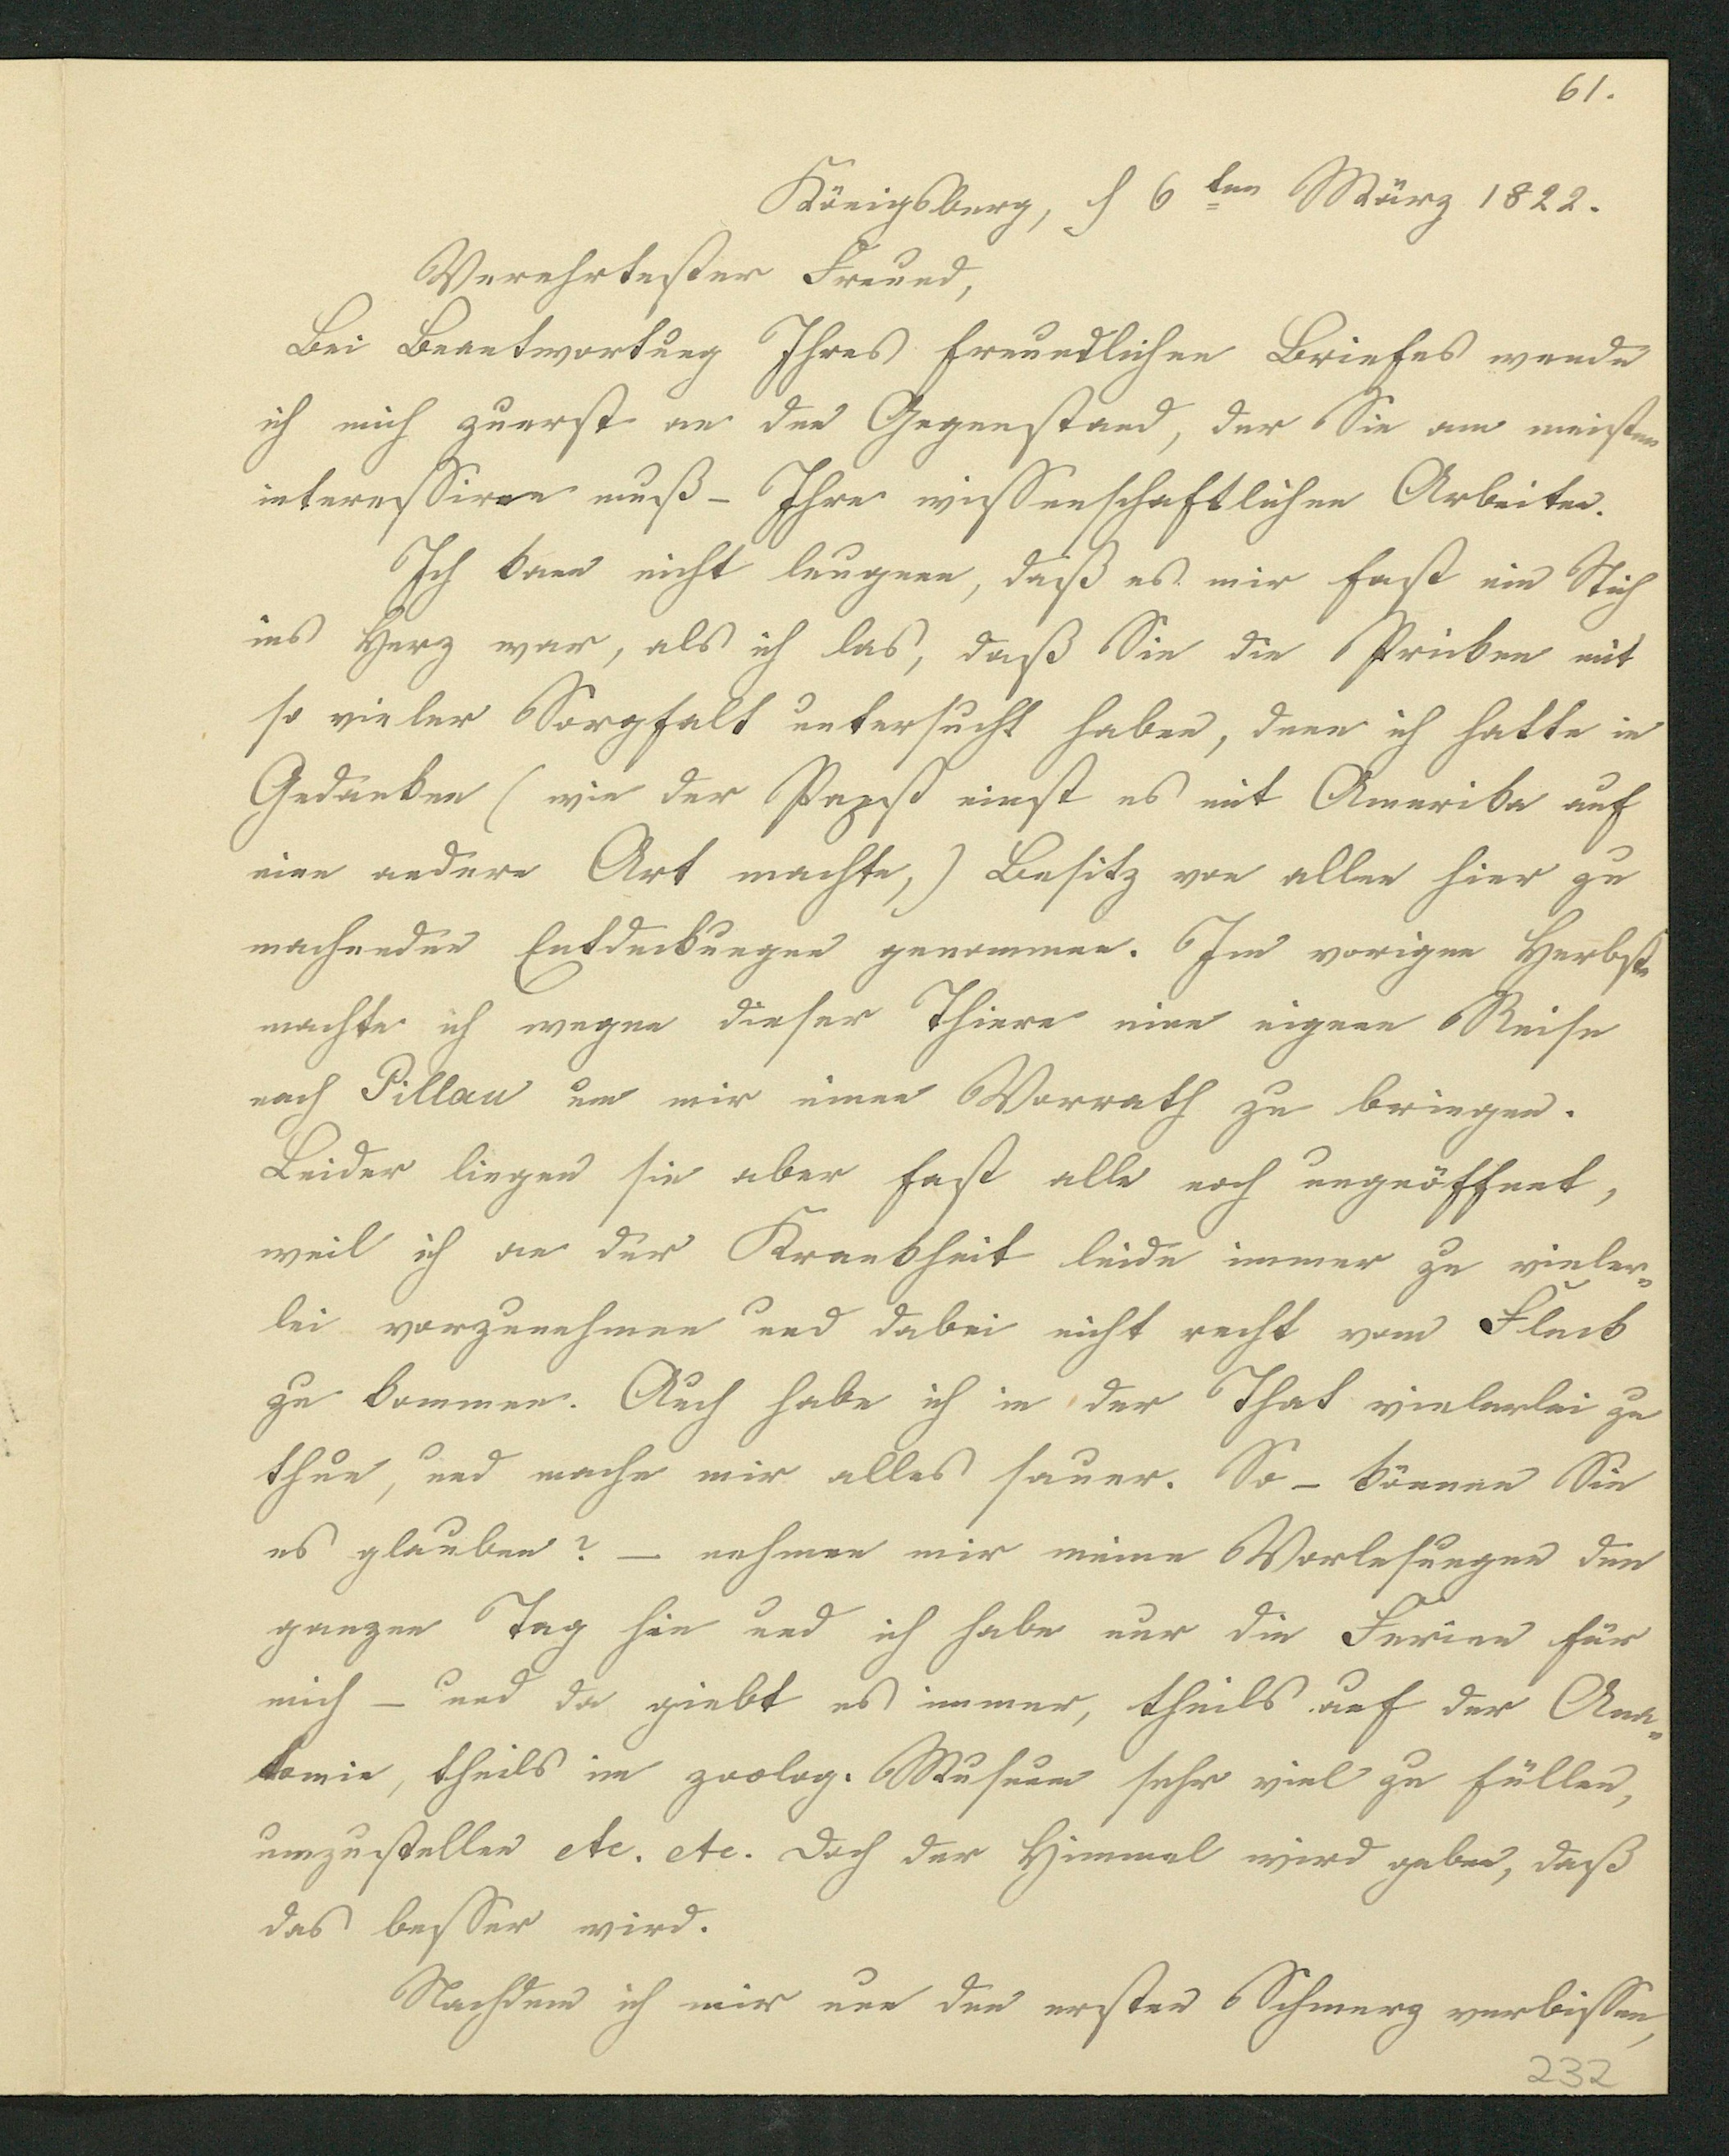 61.
Königsberg, d 6ten März 1822.
Verehrtester Freund,
Bei Beantwortung Ihres freundlichen Briefes wende
ich mich zuerst an den Gegenstand, der Sie am meisten
interessiren muß – Ihre wissenschaftlichen Arbeiten.
Ich kann nicht leugnen, daß es mir fast ein Stich
ins Herz war, als ich las, daß Sie die Pricken mit
so vieler Sorgfalt untersucht haben, denn ich hatte in
Gedanken (wie der Papst einst es mit Amerika auf
eine andere Art machte,) Besitz von allen hier zu
machenden Entdeckungen genommen. Im vorigen Herbste
machte ich wegen dieser Thiere eine eigene Reise
nach Pillau um mir einen Vorrath zu bringen.
Leider liegen sie aber fast alle noch ungeöffnet,
weil ich an der Krankheit leide immer zu vieler-
lei vorzunehmen und dabei nicht recht vom Fleck
zu kommen. Auch habe ich in der That vielerlei zu
thun, und mache mir alles sauer. So – können Sie
es glauben? – nehmen mir meine Vorlesungen den
ganzen Tag hin und ich habe nur die Ferien für
mich – und da giebt es immer, theils auf der Ana-
tomie, theils im zoolog. Museum sehr viel zu füllen,
umzustellen etc. etc. Doch der Himmel wird geben, daß
das besser wird.
Nachdem ich mir nun den ersten Schmerz verbissen,
232